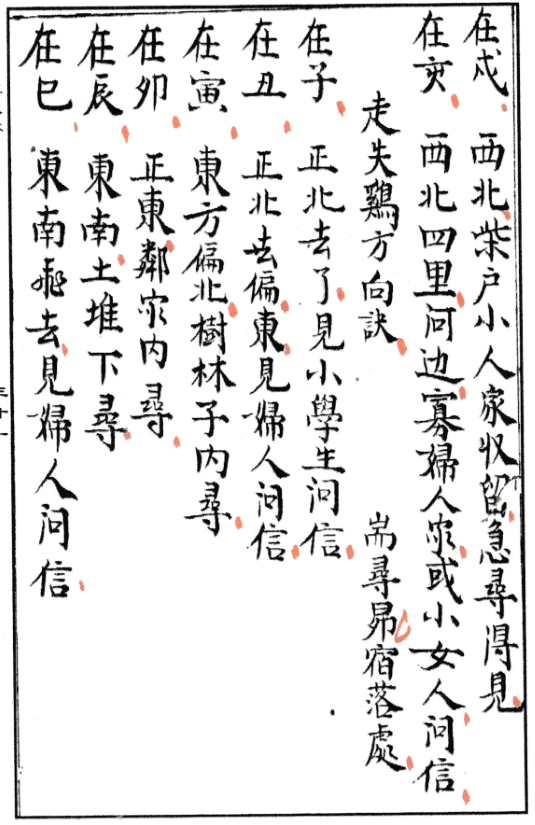 在戍 西北柴户小人家收留急尋得見
在亥 西北四里河边寡婦人家或小女人问信
走失鷄方向訣 耑尋昴宿落處
在子 正北去了見小學生问信
在丑 正北去偏東見婦人问信
在寅 東方偏北樹林子内尋
在卯 正東鄰家内尋
在辰 東南土堆下尋
在巳 東南飛去見婦人问信